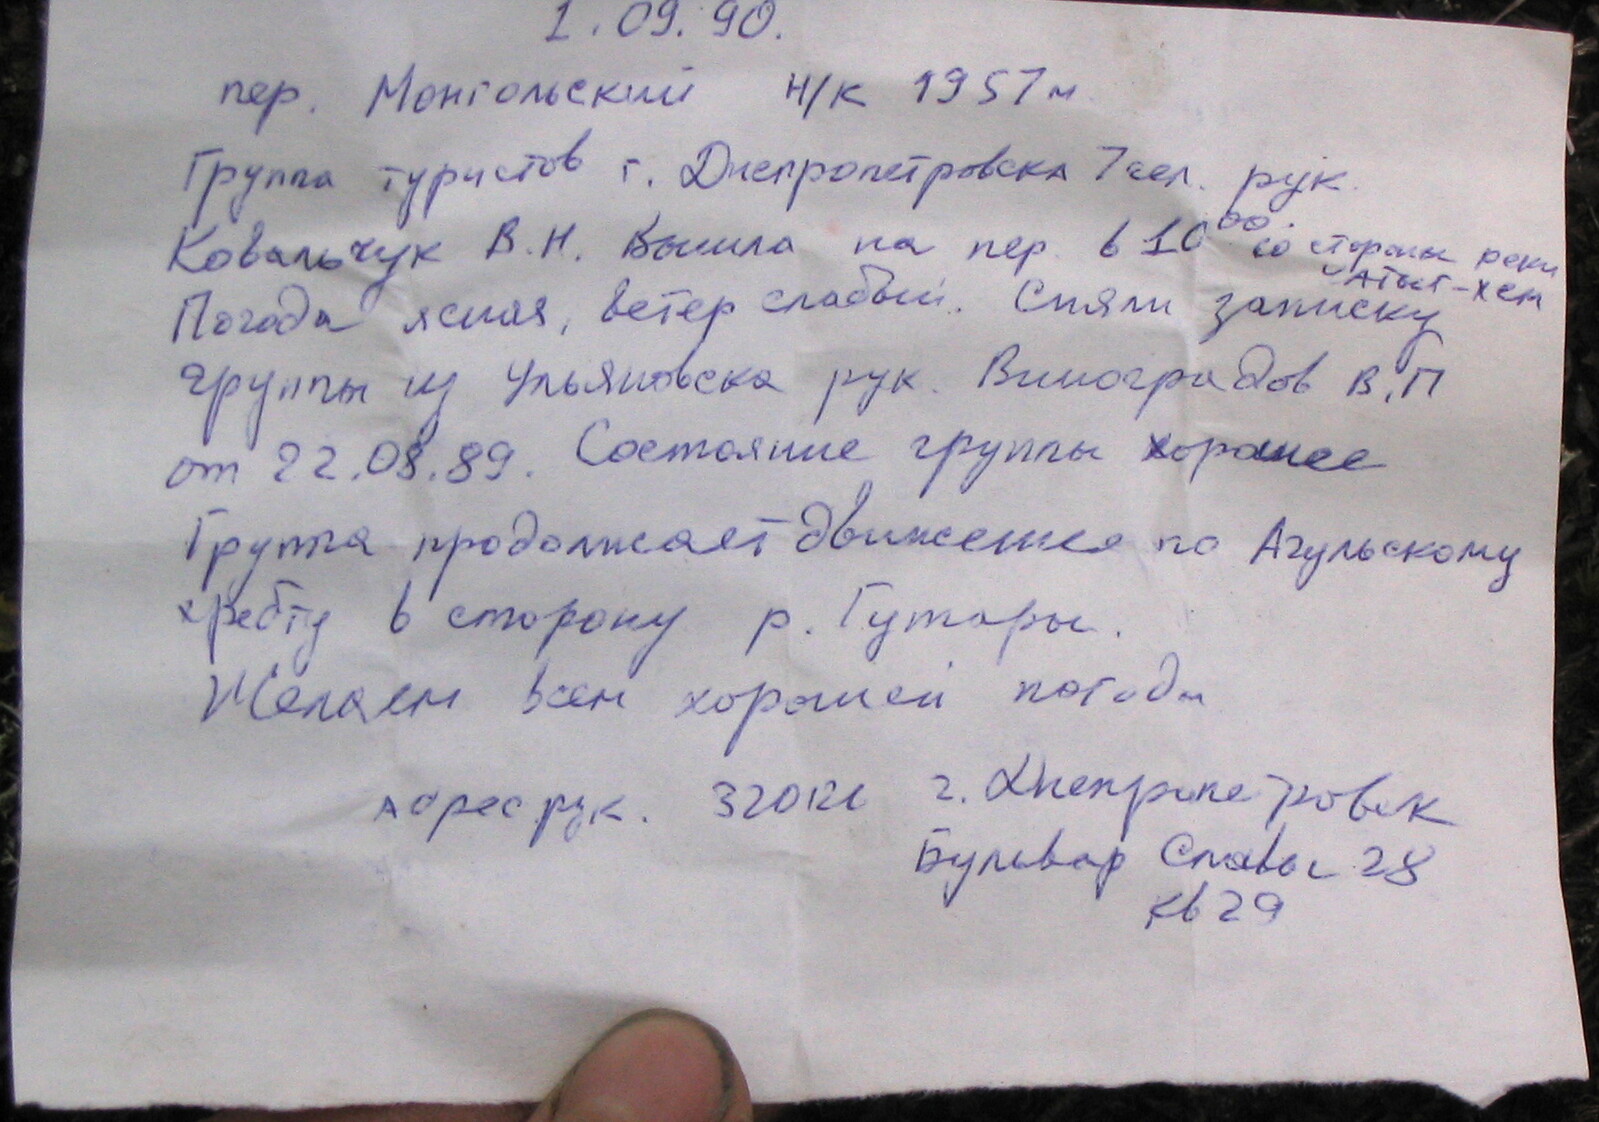 1.09.90.
пер. Монгольский н/к 1957м
Группа туристов г. Днепропетровска 7 чел. рук.
Ковальчук В.Н. Вышла на пер. в 10⁰⁰ со стороны реки
Атыг-хем
Погода ясная, ветер слабый. Сняли записку
группы из Ульяновска рук. Виноградов В.П
от 22.08.89. Состояние группы хорошее
Группа продолжает движение по Агульскому
хребту в сторону р. Гутары.
Желаем всем хорошей погоды
Адрес рук. г. Днепропетровск
Бульвар Славы 28
кв 29